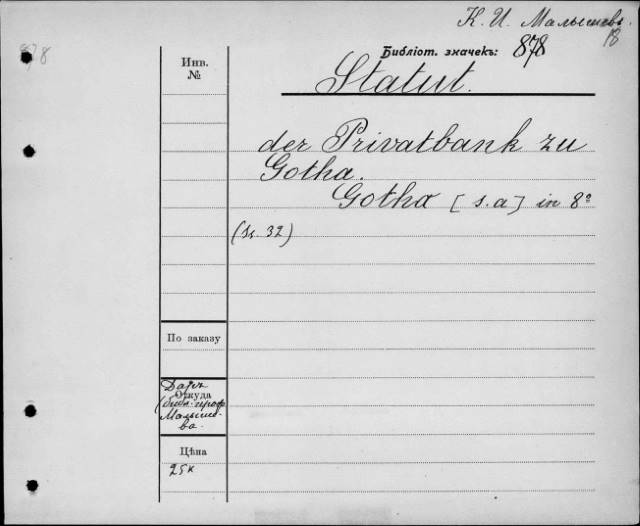 К. И. Малышевъ
18
878
Библіот. значекъ: 878
Инв.
№
Statut.
der Privatbank zu
Gotha.
Gotha [s.a] in 8º
(Ss. 32)
По заказу
Откуда
Даръ
(библ. проф
Малыше-
ва.
Цѣна
25к